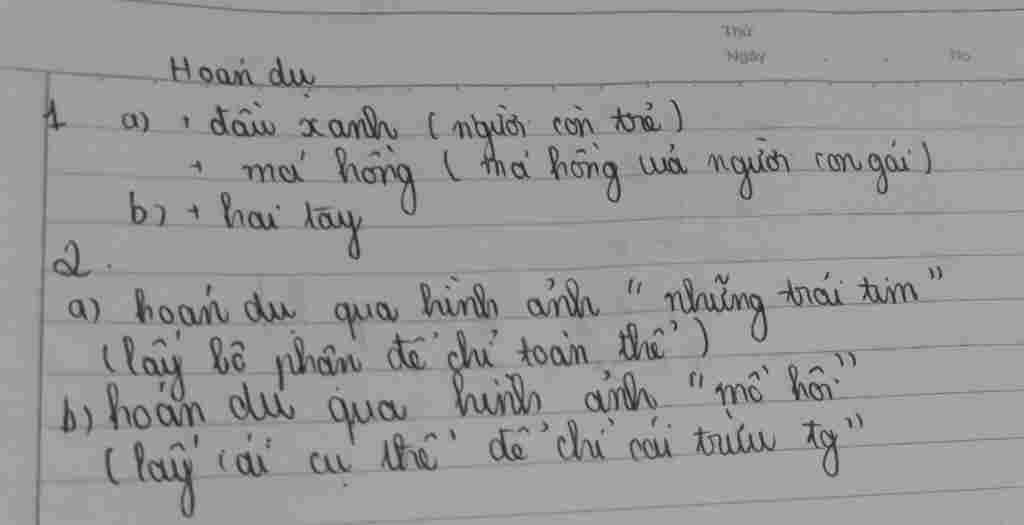 Thứ
Ngày . . No
Hoán dụ
1 a) + đầu xanh (người còn trẻ)
+ má hồng (má hồng của người con gái)
b) + hai tay
2.
a) hoán dụ qua hình ảnh "những trái tim"
(lấy bộ phận để chỉ toàn thể)
b) hoán dụ qua hình ảnh "mồ hôi"
(lấy cái cụ thể để chỉ cái trừu tg"